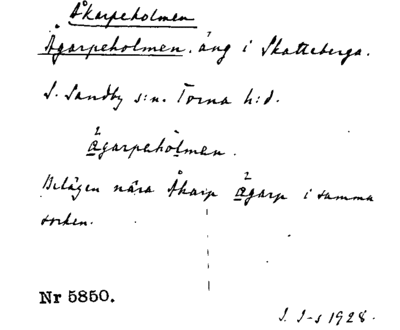 Åkarpeholmen
Ågarpeholmen. äng i Skatteberga.
S. Sandby s:n. Torna h:d.
²ågarpehòlmen.
Belägen nära Åkarp ²ågarp i samma
socken.
Nr 5850.
1928.